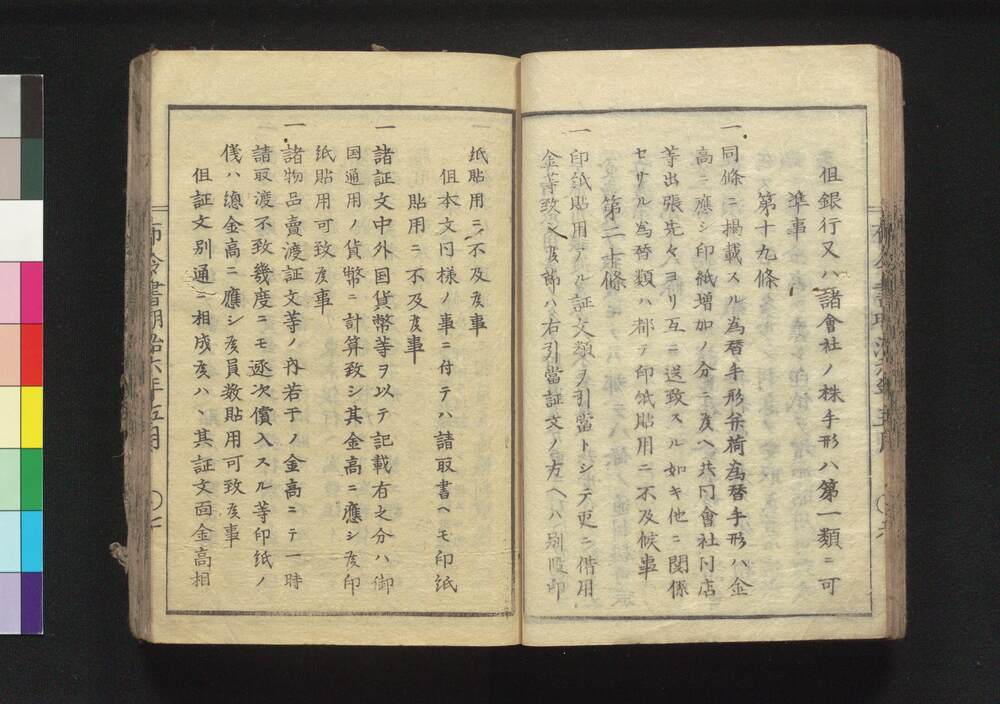 但銀行又ハ諸會社ノ株手形ハ第一類ニ可
準事
第十九條
一同條ニ掲載スル為替手形并荷為替手形ハ金
高ニ應シ印紙増加ノ分ニ候ヘ共同會社同店
等出張先々ヨリ互ニ送致スル如キ他ニ関係
セサル為替類ハ都テ印紙貼用ニ不及候事
第二十條
一印紙貼用アル証文類ヲ引當トシテ更ニ借用
金等致シ候節ハ右引當証文ノ方ヘハ別段印
紙貼用ニ不及候事
但本文同様ノ事ニ付テハ請取書ヘモ印紙
貼用ニ不及候事
一諸証文中外国貨幣等ヲ以テ記載有之分ハ御
国通用ノ貨幣ニ計算致シ其金高ニ應シ候印
紙貼用可致候事
一諸物品賣渡証文等ノ内若干ノ金高ニテ一時
請取渡不致幾度ニモ逐次償入スル等印紙ノ
儀ハ總金高ニ應シ候員数貼用可致候事
但証文別通ニ相成候ハヽ其証文面金高相
布令書明治六年五月